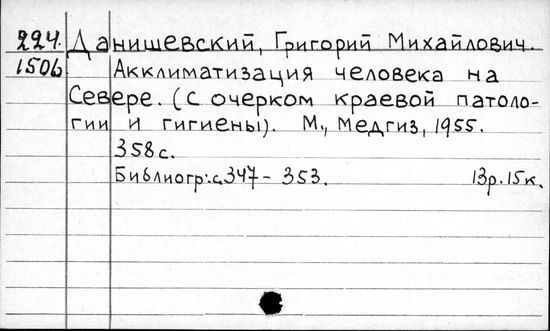 224. Данишевский, Григорий Михайлович.
1506 Акклиматизация человека на
Севере. (с очерком краевой патоло-
гии и гигиены). М., Медгиз, 1955.
358 с.
Библиогр.: с. 347 - 353. 13р. 15к.